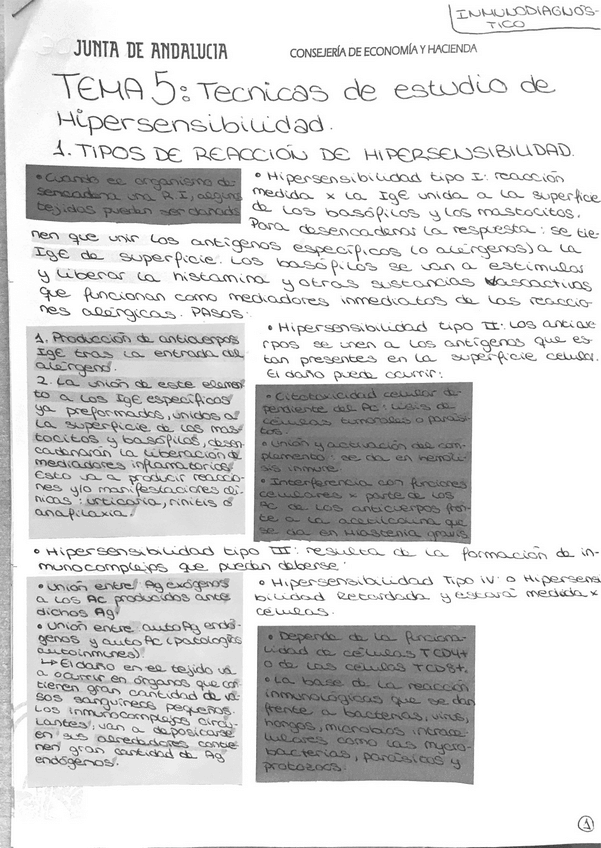 INMUNODIAGNÓS-
TICO
JUNTA DE ANDALUCIA
CONSEJERÍA DE ECONOMÍA Y HACIENDA
TEMA 5: Tecnicas de estudio de
Hipersensibilidad.
1. TIPOS DE REACCIÓN DE HIPERSENSIBILIDAD.
• Cuando el organismo de-
sencadena una R.I, algunos
tejidos pueden ser dañados
• Hipersensibilidad tipo I: reacción
medida x la IgE unida a la superficie
de los basófilos y los mastocitos.
Para desencadenar la respuesta: se tie-
nen que unir los antígenos específicos (o alérgenos) a la
IgE de superficie. Los basófilos se van a estimular
y liberar la histamina y otras sustancias vasoactivas
que funcionan como mediadores inmediatos de las reaccio-
nes alérgicas. PASOS:
1. Producción de anticuerpos
IgE tras la entrada del
alérgeno.
2. La unión de este elemen-
to a los IgE específicas
ya preformados, unidos a
la superficie de los mas-
tocitos y basófilos, desen-
cadenarán la liberación de
mediadores inflamatorios.
Esto va a producir reaccio-
nes y/o manifestaciones clí-
nicas: urticaria, rinitis o
anafilaxia.
• Hipersensibilidad tipo II: Los anticue-
rpos se unen a los antígenos que es-
tan presentes en la superficie celular.
El daño puede ocurrir:
• Citotoxicidad celular de-
pendiente del Ac: lisis de
células tumorales o parási-
tos.
• Unión y activación del com-
plemento: se da en hemóli-
sis inmune.
• Interferencia con funciones
celulares x parte de los
Ac de los anticuerpos fren-
te a la acetilcolina que
se da en Miastenia gravis
• Hipersensibilidad tipo III: resulta de la formación de in-
munocomplejos que pueden deberse:
• Unión entre Ag exógenos
a los Ac producidos ante
dichos Ag
• Unión entre auto Ag endó-
genos y auto Ac (patologías
autoinmunes).
↳ El daño en el tejido va
a ocurrir en órganos que con-
tienen gran cantidad de va-
sos sanguíneos pequeños.
Los inmunocomplejos circu-
lantes: van a depositarse
en sus alrededores contie-
nen gran cantidad de Ag
endógenos.
• Hipersensibilidad Tipo IV: o Hipersensi
bilidad Retardada y estará medida x
células.
• Depende de la funciona-
lidad de células TCD4+
o de las células TCD8+.
• La base de la reacción
inmunológicas que se dan
frente a bacterias, virus,
hongos, microbios intrace-
lulares como las myco-
bacterias, parásitos y
protozoos.
1